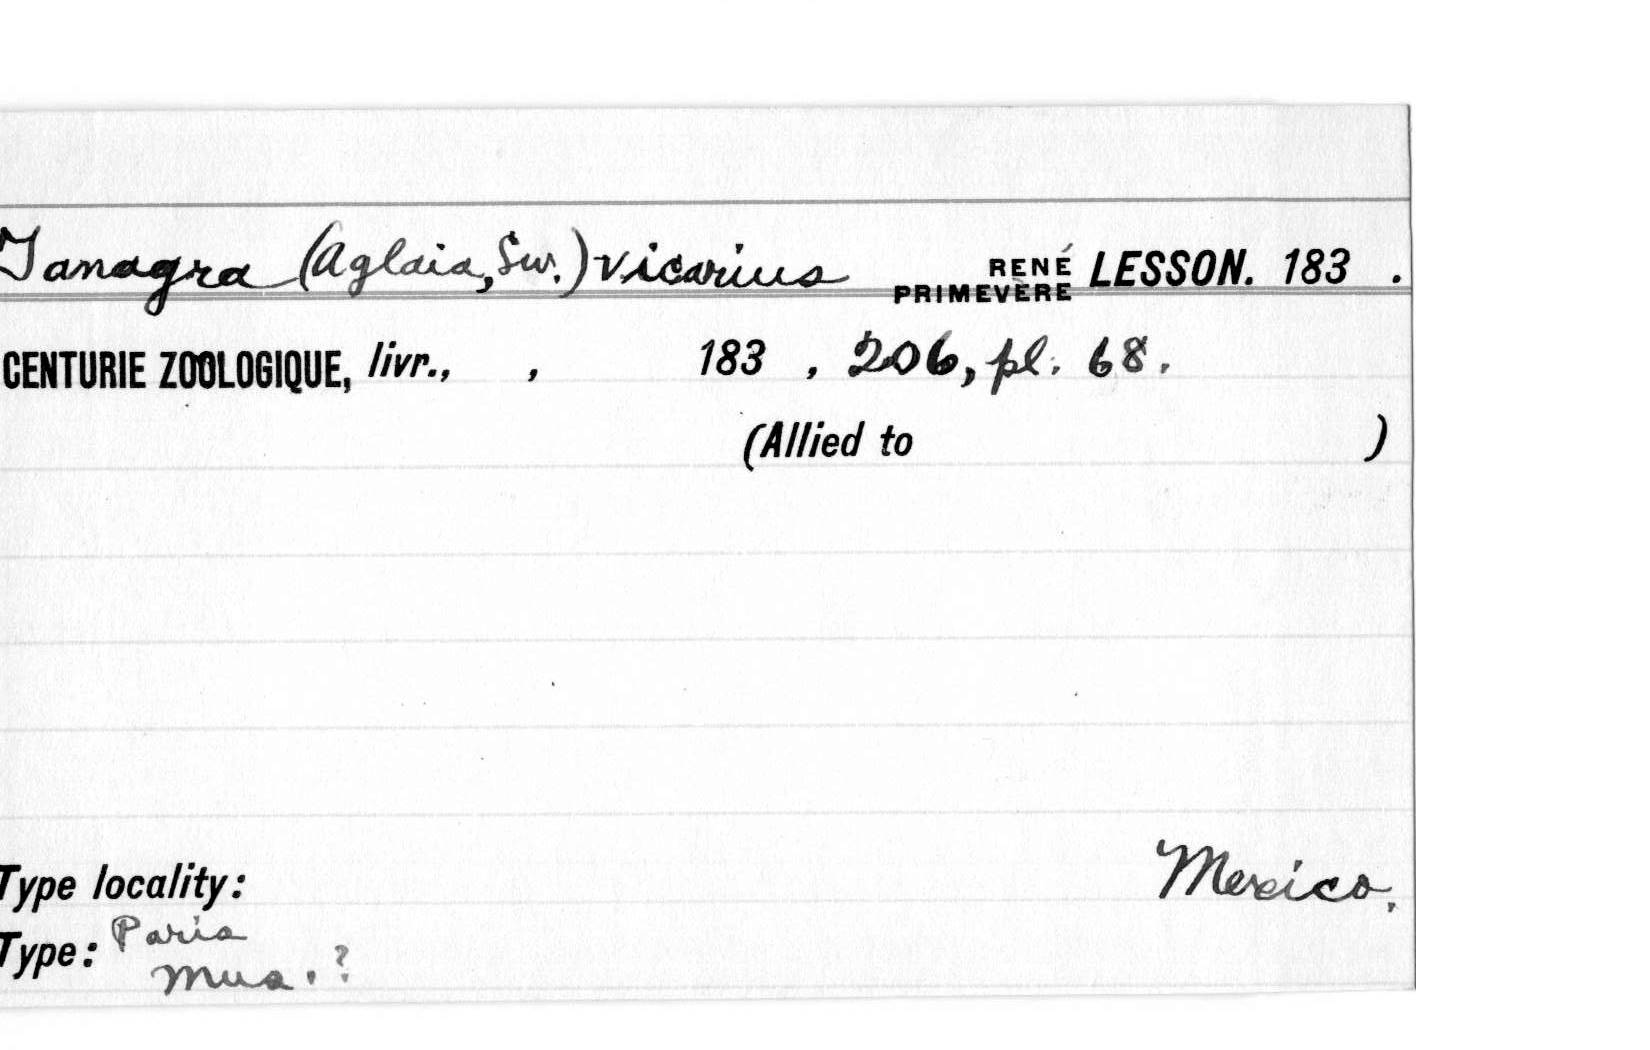 Tanagra (Aglaia, Sw.) vicarius RENÉ PRIMEVÈRE LESSON. 183 .
CENTURIE ZOOLOGIQUE, livr., , 183 , 206, pl. 68.
(Allied to )
Type locality: Mexico.
Type: Paris
Mus. ?